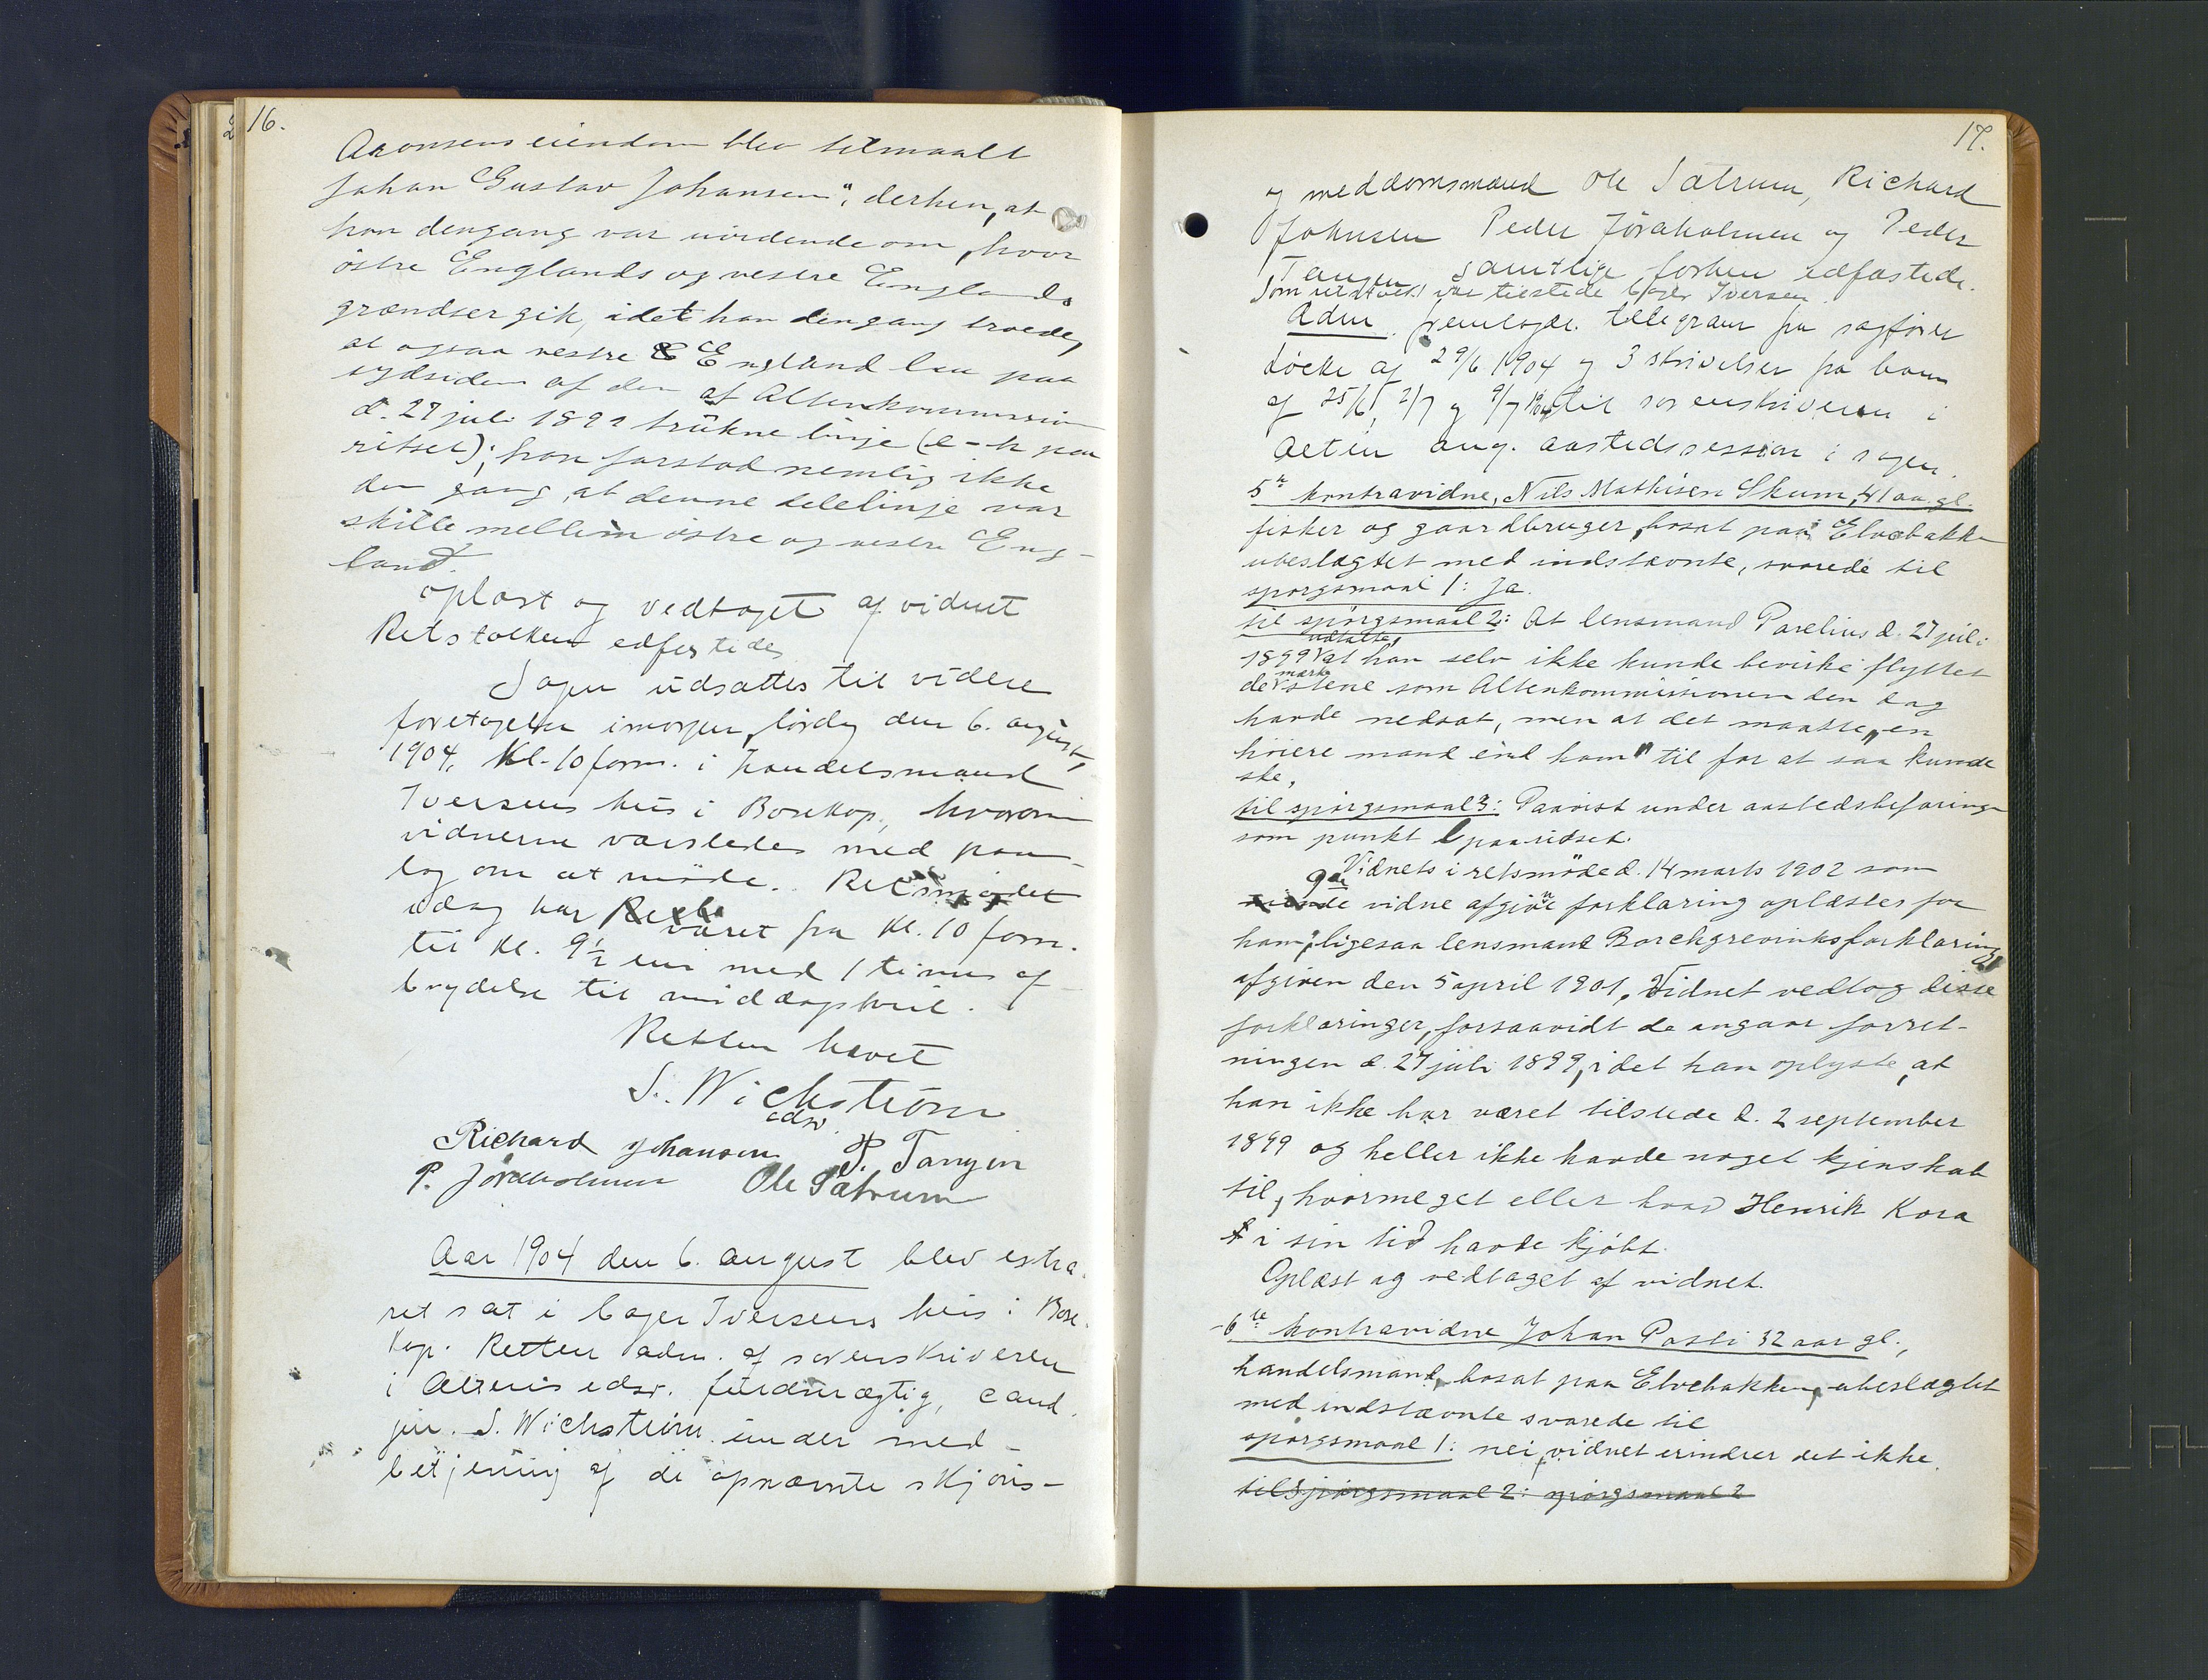 16.
Aronsens eiendom blev tilmaalt
Johan Gustav Johansen", derhen, at
han dengang var uvidende om, hvor
østre Englands og vestre Englands
grændser gik, idet han dengang troede,
at ogsaa vestre England laa paa
sydsiden af den af Altenkommission
d. 27 juli 1899 trukne linje (e-h paa
ridset); han forstod nemlig ikke
den gang, at denne delelinje var
skille mellem østre og vestre Eng-
land.
Oplæst og vedtaget af vidnet
Retstolken edfestedes
Sagen udsattes til videre
foretagelse imorgen, lørdag den 6. august,
1904, Kl. 10 form. i handelsmand
Iversens hus i Bosekop, hvorom
vidnerne varsledes med paa-
læg om at møde. Retsmødet
idag har været fra Kl. 10 form.
til Kl. 9½ em med 1 times af-
brydelse til middagshvil.
Retten hævet
S. Wichstrøm
edsv.
Richard Johansen P. Tangen
P. Jøraholmen Ole Sætrum
Aar 1904 den 6. august blev extra-
ret sat i Cajer Iversens hus i Bose-
kop. Retten adm. af sorenskriveren
i Altens edsv. fuldmægtig, cand.
jur. S. Wichstrøm under med-
betjening af de opnævnte skjøns-
17.
og meddomsmænd Ole Sætrum, Richard
Johnsen Peder Jøraholmen og Peder
Tangen samtlige forhen edfæstede.
Som retstolk var tilstede Cajer Iversen.
Adm. fremlagde telegram fra sagfører
Løcke af 29/6 1904 og 3 skrivelser fra ham
af 25/6, 2/7 og 9/7 1904 til sorenskriveren i
Alten ang. aastedssession i sagen.
5te kontravidne, Nils Mathisen Skum, 41 aa gl.
fisker og gaardbruger, bosat paa Elvebakken
ubeslægtet med indstævnte, svarede til
spørgsmaal 1: Ja.
til spørgsmaal 2: At lensmand Parelius d. 27 juli
udtalte,
1899 at han selv ikke kunde bevirke flyttet
mærke
de stene som Altenkommissionen den dag
havde nedsat, men at det maatte "en
høiere mand end ham" til for at saa kunde
ske.
til spørgsmaal 3: Paavist under aastedsbefaringen
som punkt l paa ridset.
Vidnets i retsmøde d. 14 marts 1902 som
9de vidne afgivne forklaring oplæstes for
ham; ligesaa lensmand Borchgrevinks forklaring
afgiven den 5 april 1901. Vidnet vedtog disse
forklaringer, forsaavidt de angaar forret-
ningen d. 27 juli 1899, idet han oplyste, at
han ikke har været tilstede d. 2 september
1899 og heller ikke havde noget kjenskab
til, hvormeget eller hvad Henrik Kora
i sin tid havde kjøbt.
Oplæst og vedtaget af vidnet.
6te kontravidne Johan Posti 32 aar gl.,
handelsmand, bosat paa Elvebakken, ubeslægtet
med indstævnte svarede til
spørgsmaal 1: nei, vidnet erindrer det ikke.
til spørgsmaal 2: spørgsmaal 2